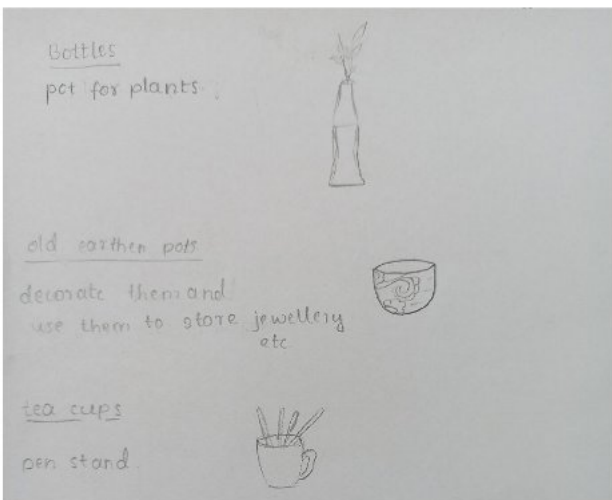 Bottles
pot for plants.
old earthen pots
decorate them and
use them to store jewellery
etc
tea cups
pen stand